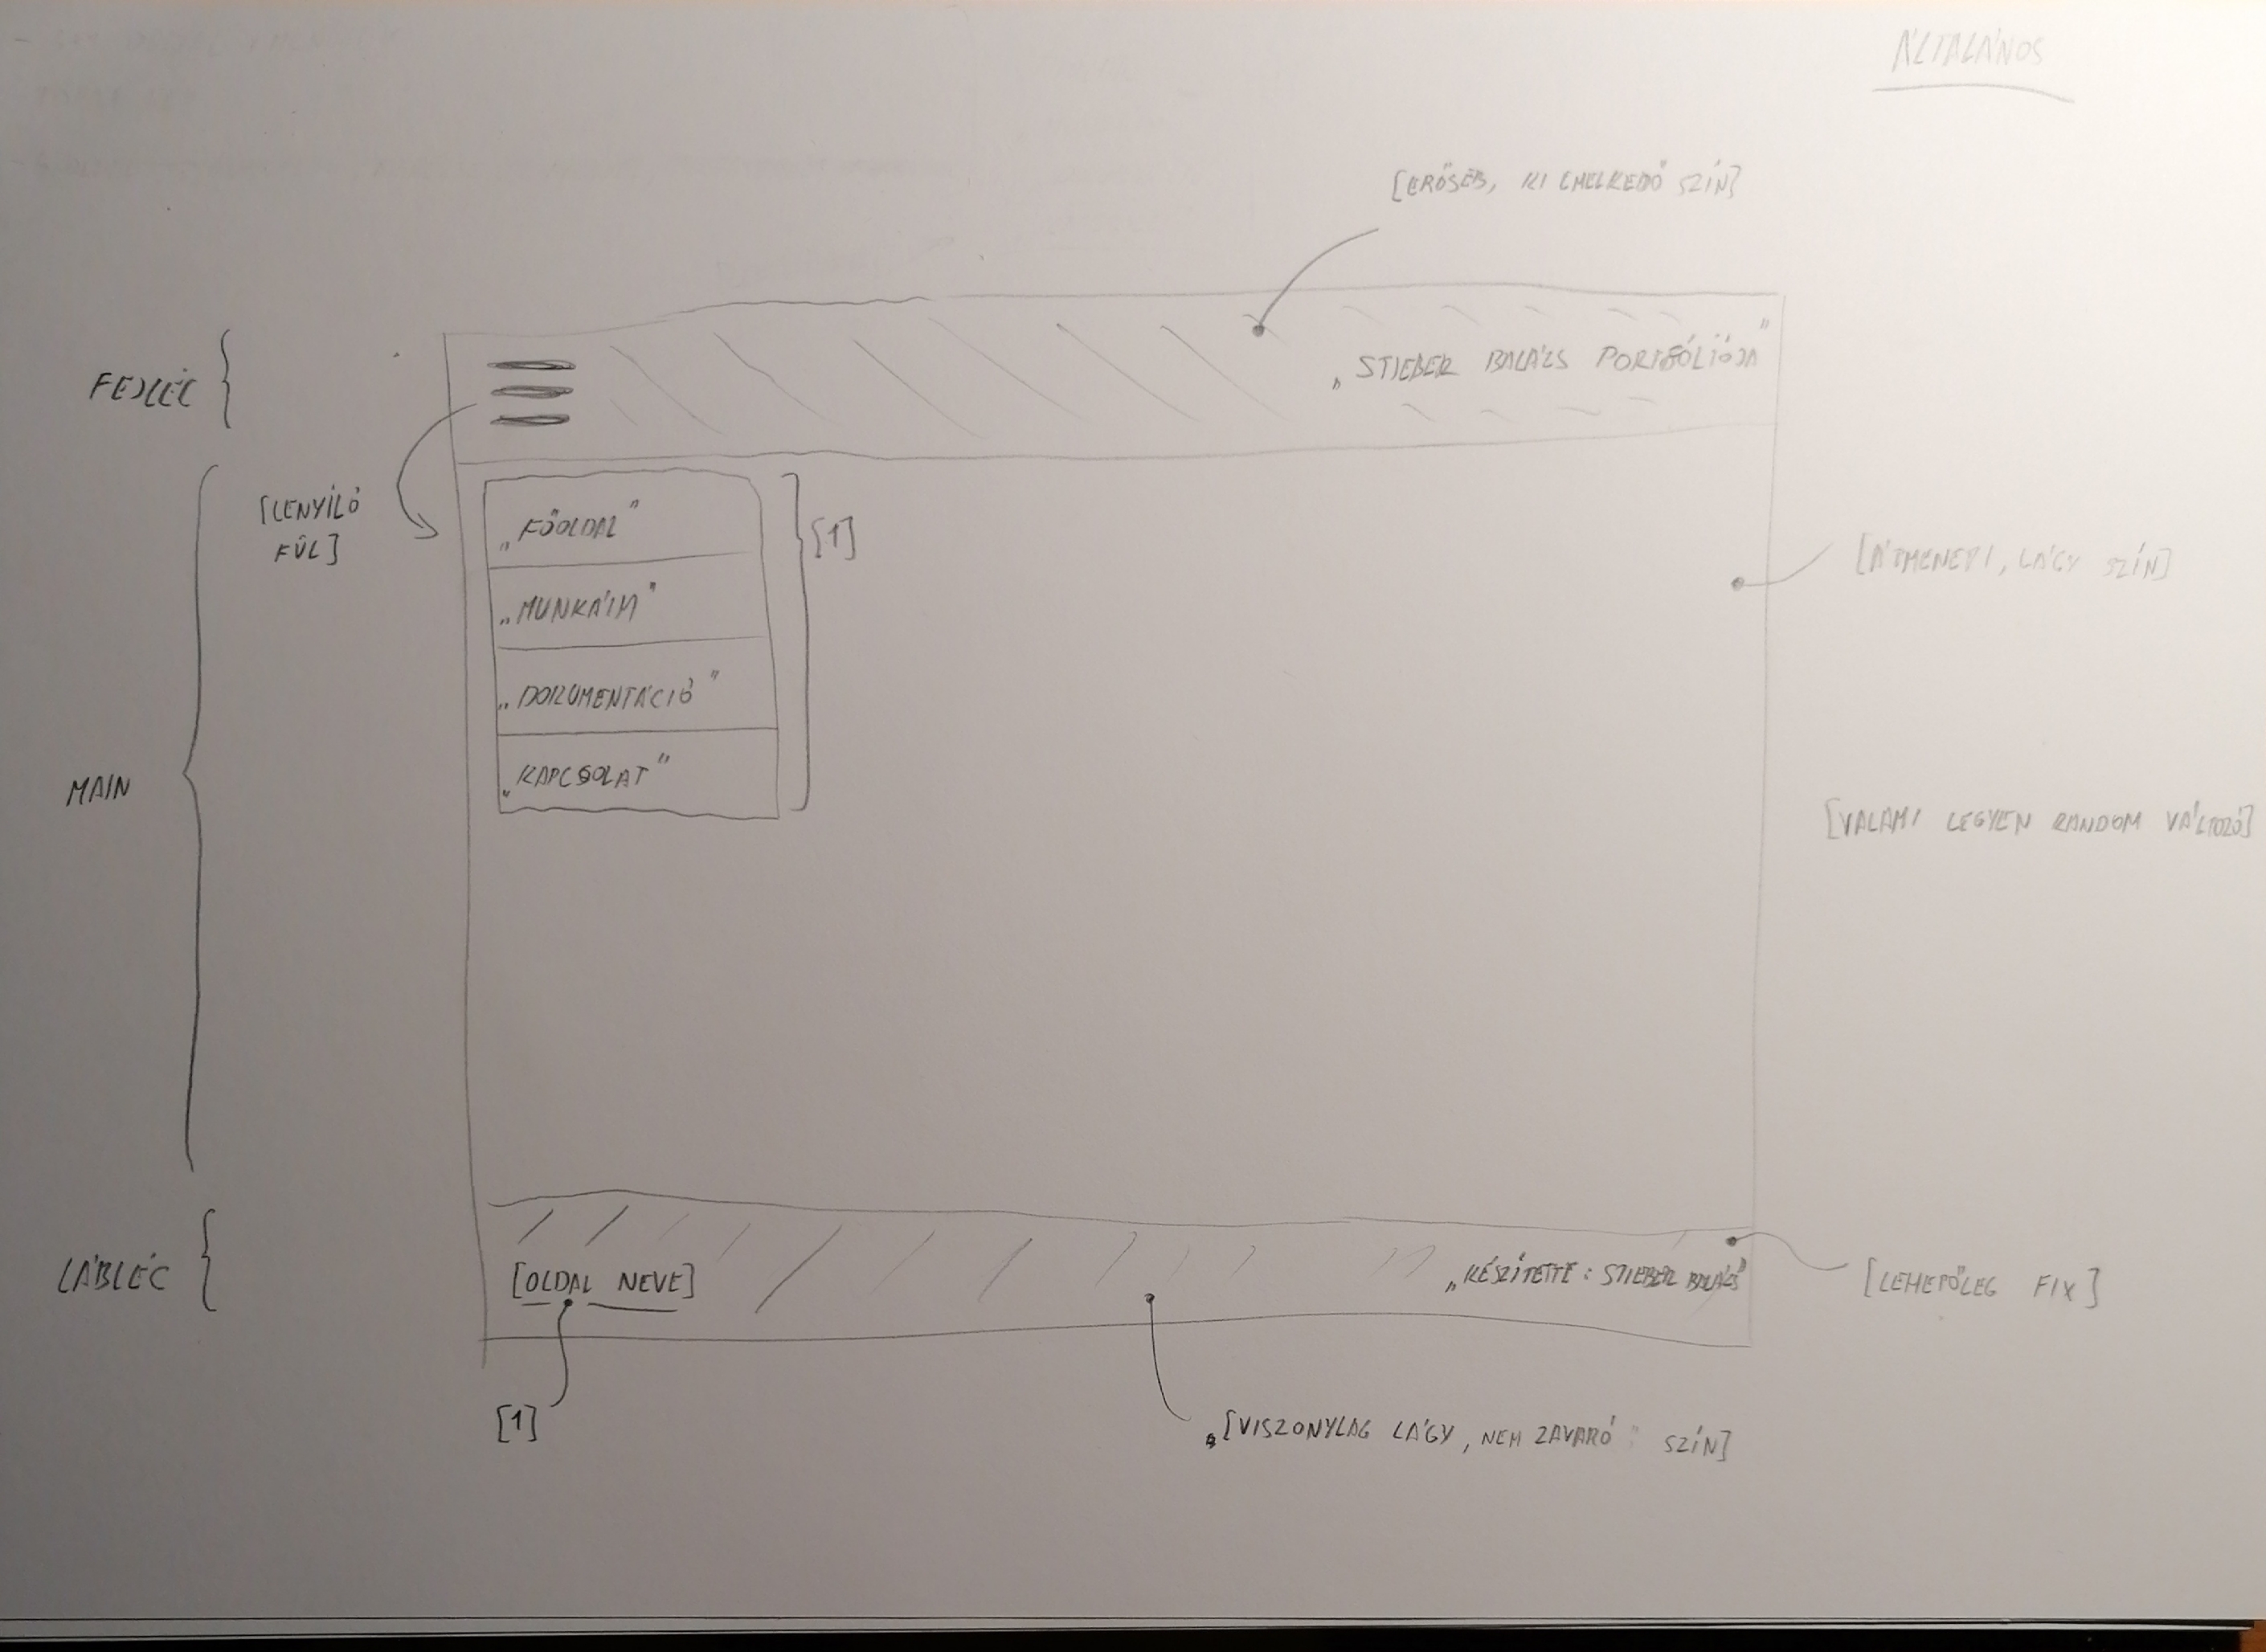 ÁLTALÁNOS
[ERŐSEB, KI EMELKEDŐ SZÍN]
FEJLÉC
„STIEBER BALÁZS PORTFÓLIÓJA”
[LENYÍLÓ
FÜL]
„FŐOLDAL”
[1]
„MUNKÁIM”
„DOKUMENTÁCIÓ”
„KAPCSOLAT”
[ÁTMENETI, LÁGY SZÍN]
MAIN
[VALAMI LEGYEN RANDOM VÁLTOZÓ]
LÁBLÉC
[OLDAL NEVE]
„KÉSZÍTETTE: STIEBER BALÁZS”
[LEHETŐLEG FIX]
[1]
„[VISZONYLAG LÁGY, NEM ZAVARÓ SZÍN]